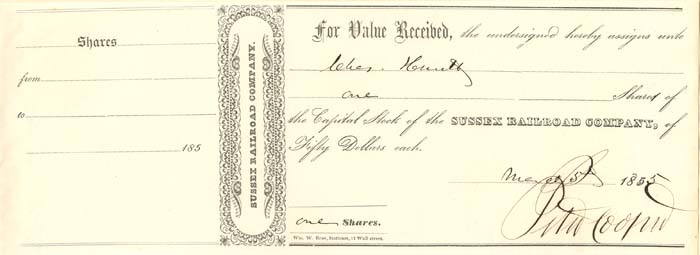 Shares
from
to
185
SUSSEX RAILROAD COMPANY.
For Value Received, the undersigned hereby assigns unto
Chas. Hewitt
one Shares of
the Capital Stock of the SUSSEX RAILROAD COMPANY, of
Fifty Dollars each.
1855
one Shares.
Peter Cooper
Wm. W. Rose, Stationer, 11 Wall street.